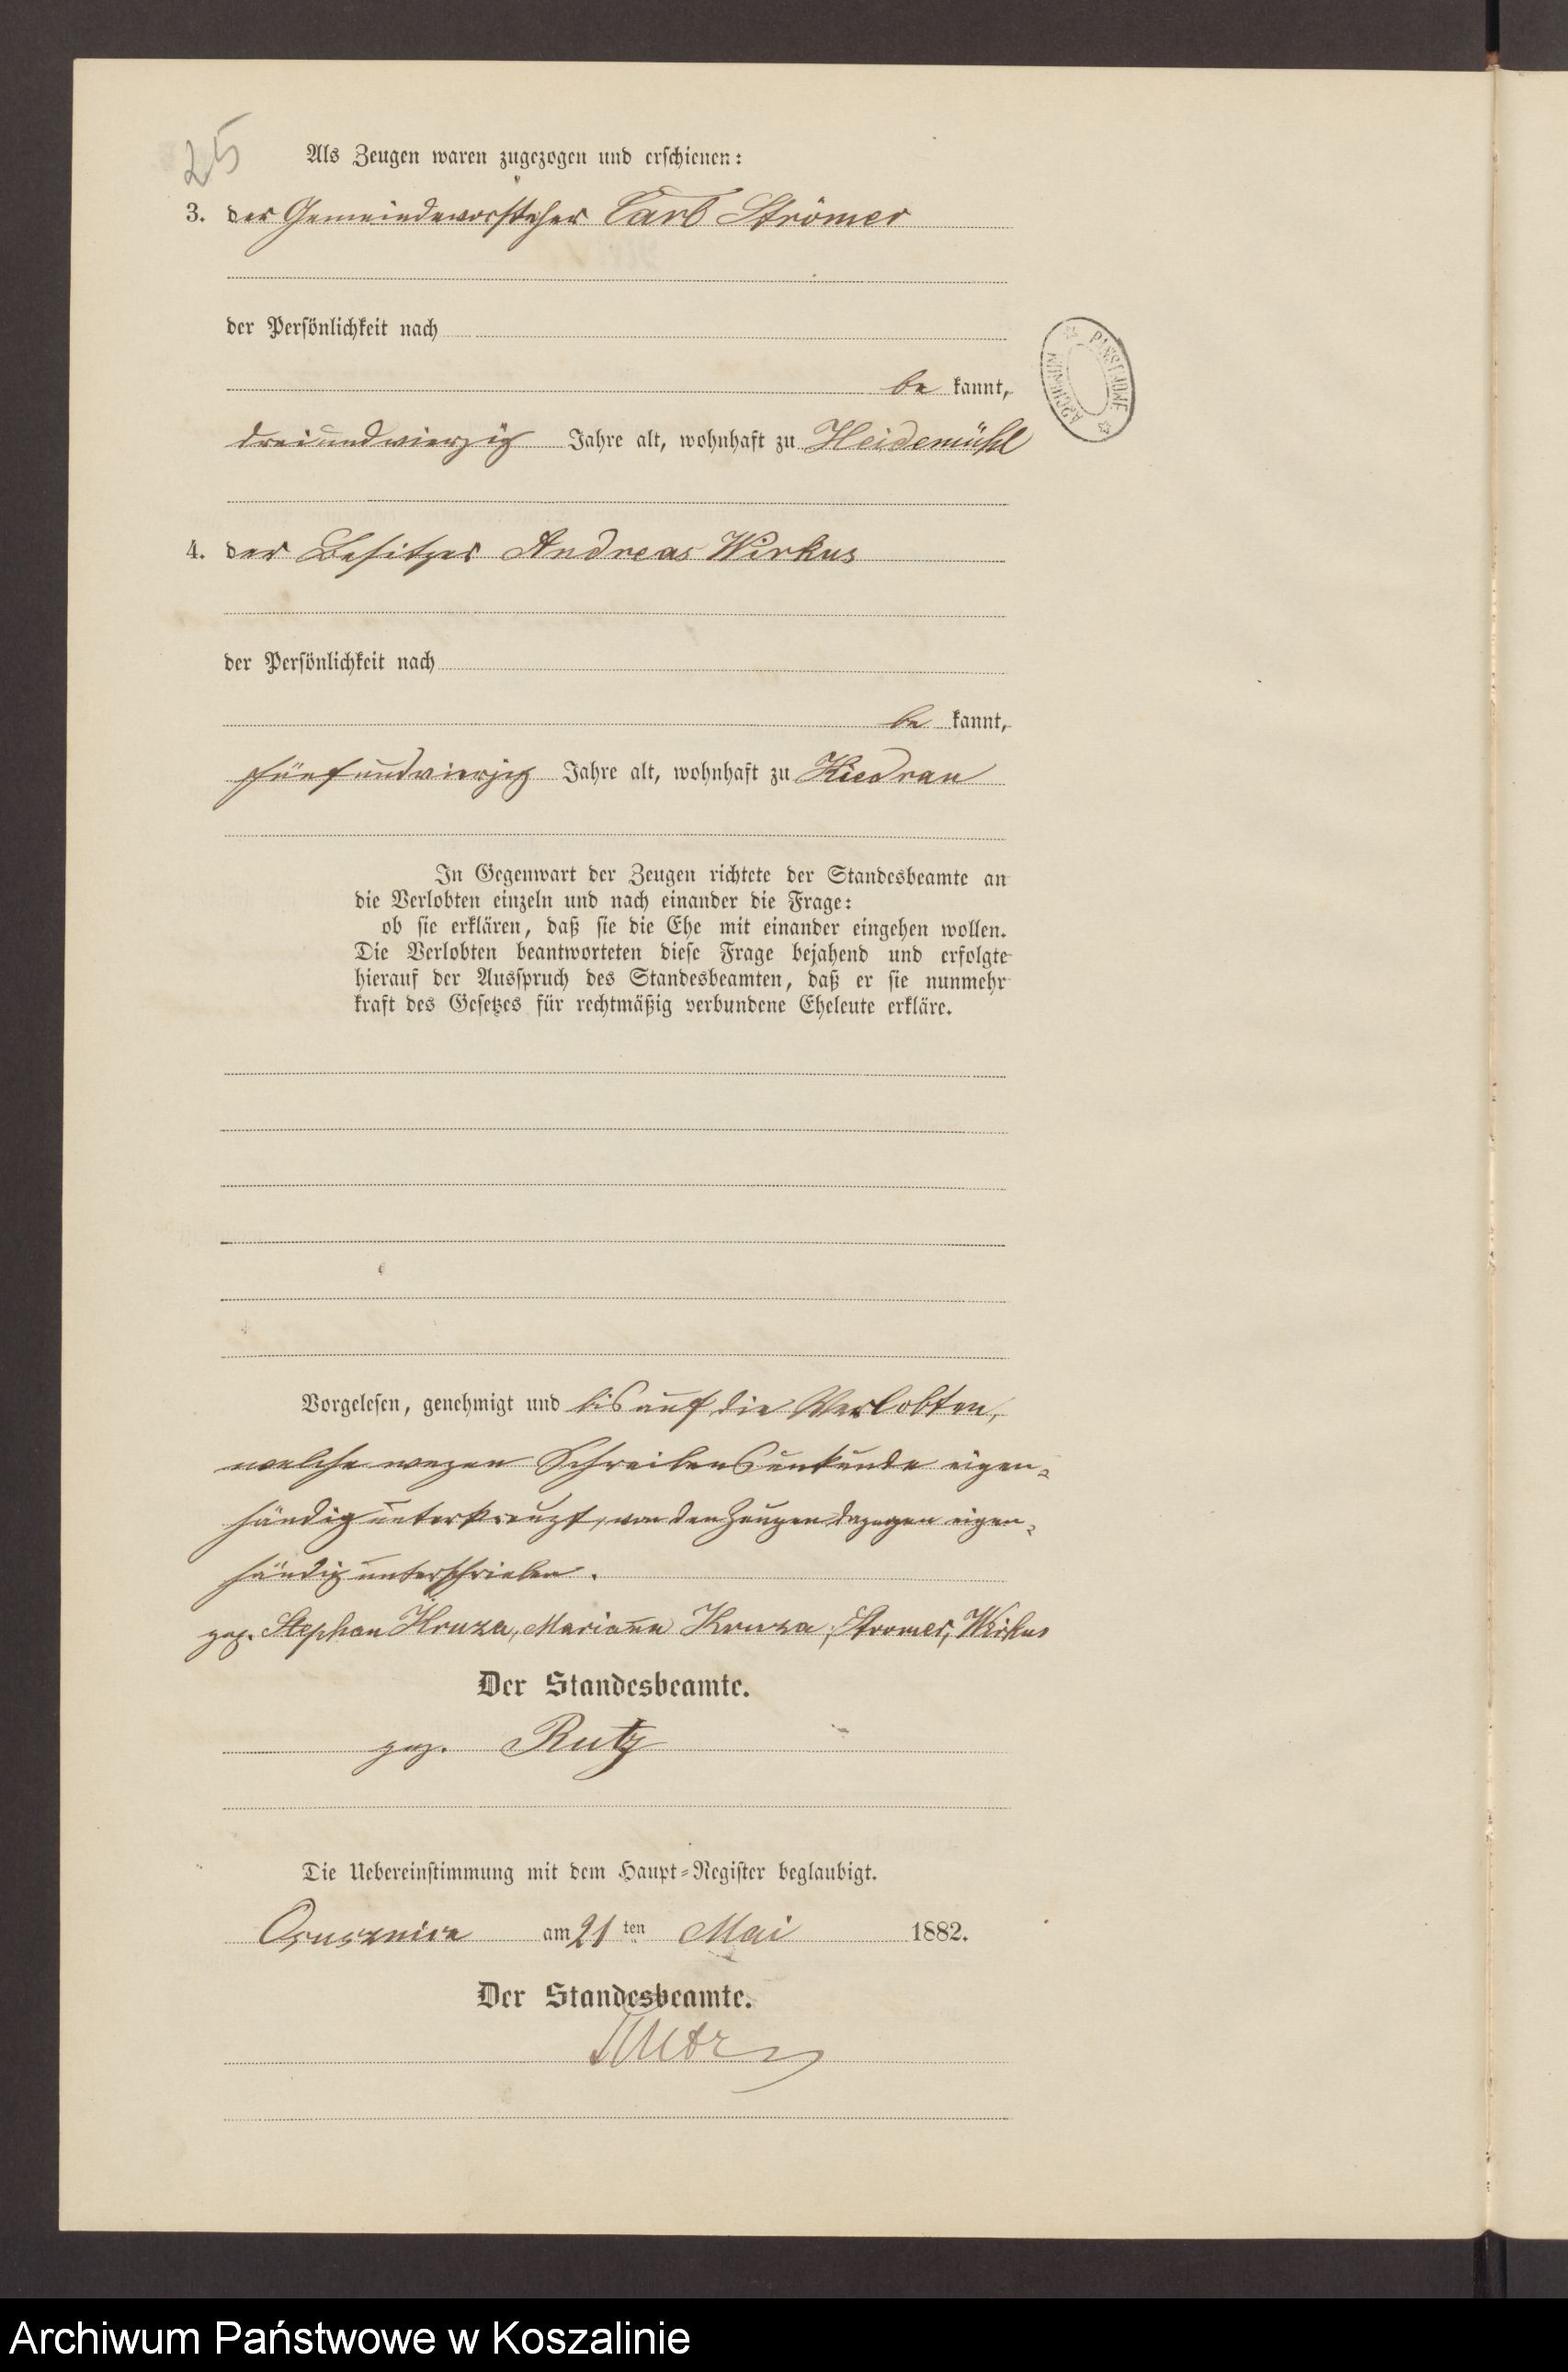 25
Als Zeugen waren zugezogen und erschienen:
3. der Gemeindevorsteher Carl Strömer
der Persönlichkeit nach
be kannt,
dreiundvierzig Jahre alt, wohnhaft zu Heidemühl
4. der Besitzer Andreas Wirkus
der Persönlichkeit nach
be kannt,
fünfundvierzig Jahre alt, wohnhaft zu Kiedrau
In Gegenwart der Zeugen richtete der Standesbeamte an
die Verlobten einzeln und nach einander die Frage:
ob sie erklären, daß sie die Ehe mit einander eingehen wollen.
Die Verlobten beantworteten diese Frage bejahend und erfolgte
hierauf der Ausspruch des Standesbeamten, daß er sie nunmehr
kraft des Gesetzes für rechtmäßig verbundene Eheleute erkläre.
Vorgelesen, genehmigt und bis auf die Verlobten,
welche wegen Schreibensunkunde eigen-
händig unterkreuzt, von den Zeugen dagegen eigen-
händig unterschrieben.
gez. Stephan Kruza, Marianna Kruza, Stromer, Wirkus
Der Standesbeamte.
gez. Rutz
Die Uebereinstimmung mit dem Haupt-Register beglaubigt.
Osusznica am 21 ten Mai 1882.
Der Standesbeamte.
Rutz
ARCHIWUM PAŃSTWOWE
Archiwum Państwowe w Koszalinie